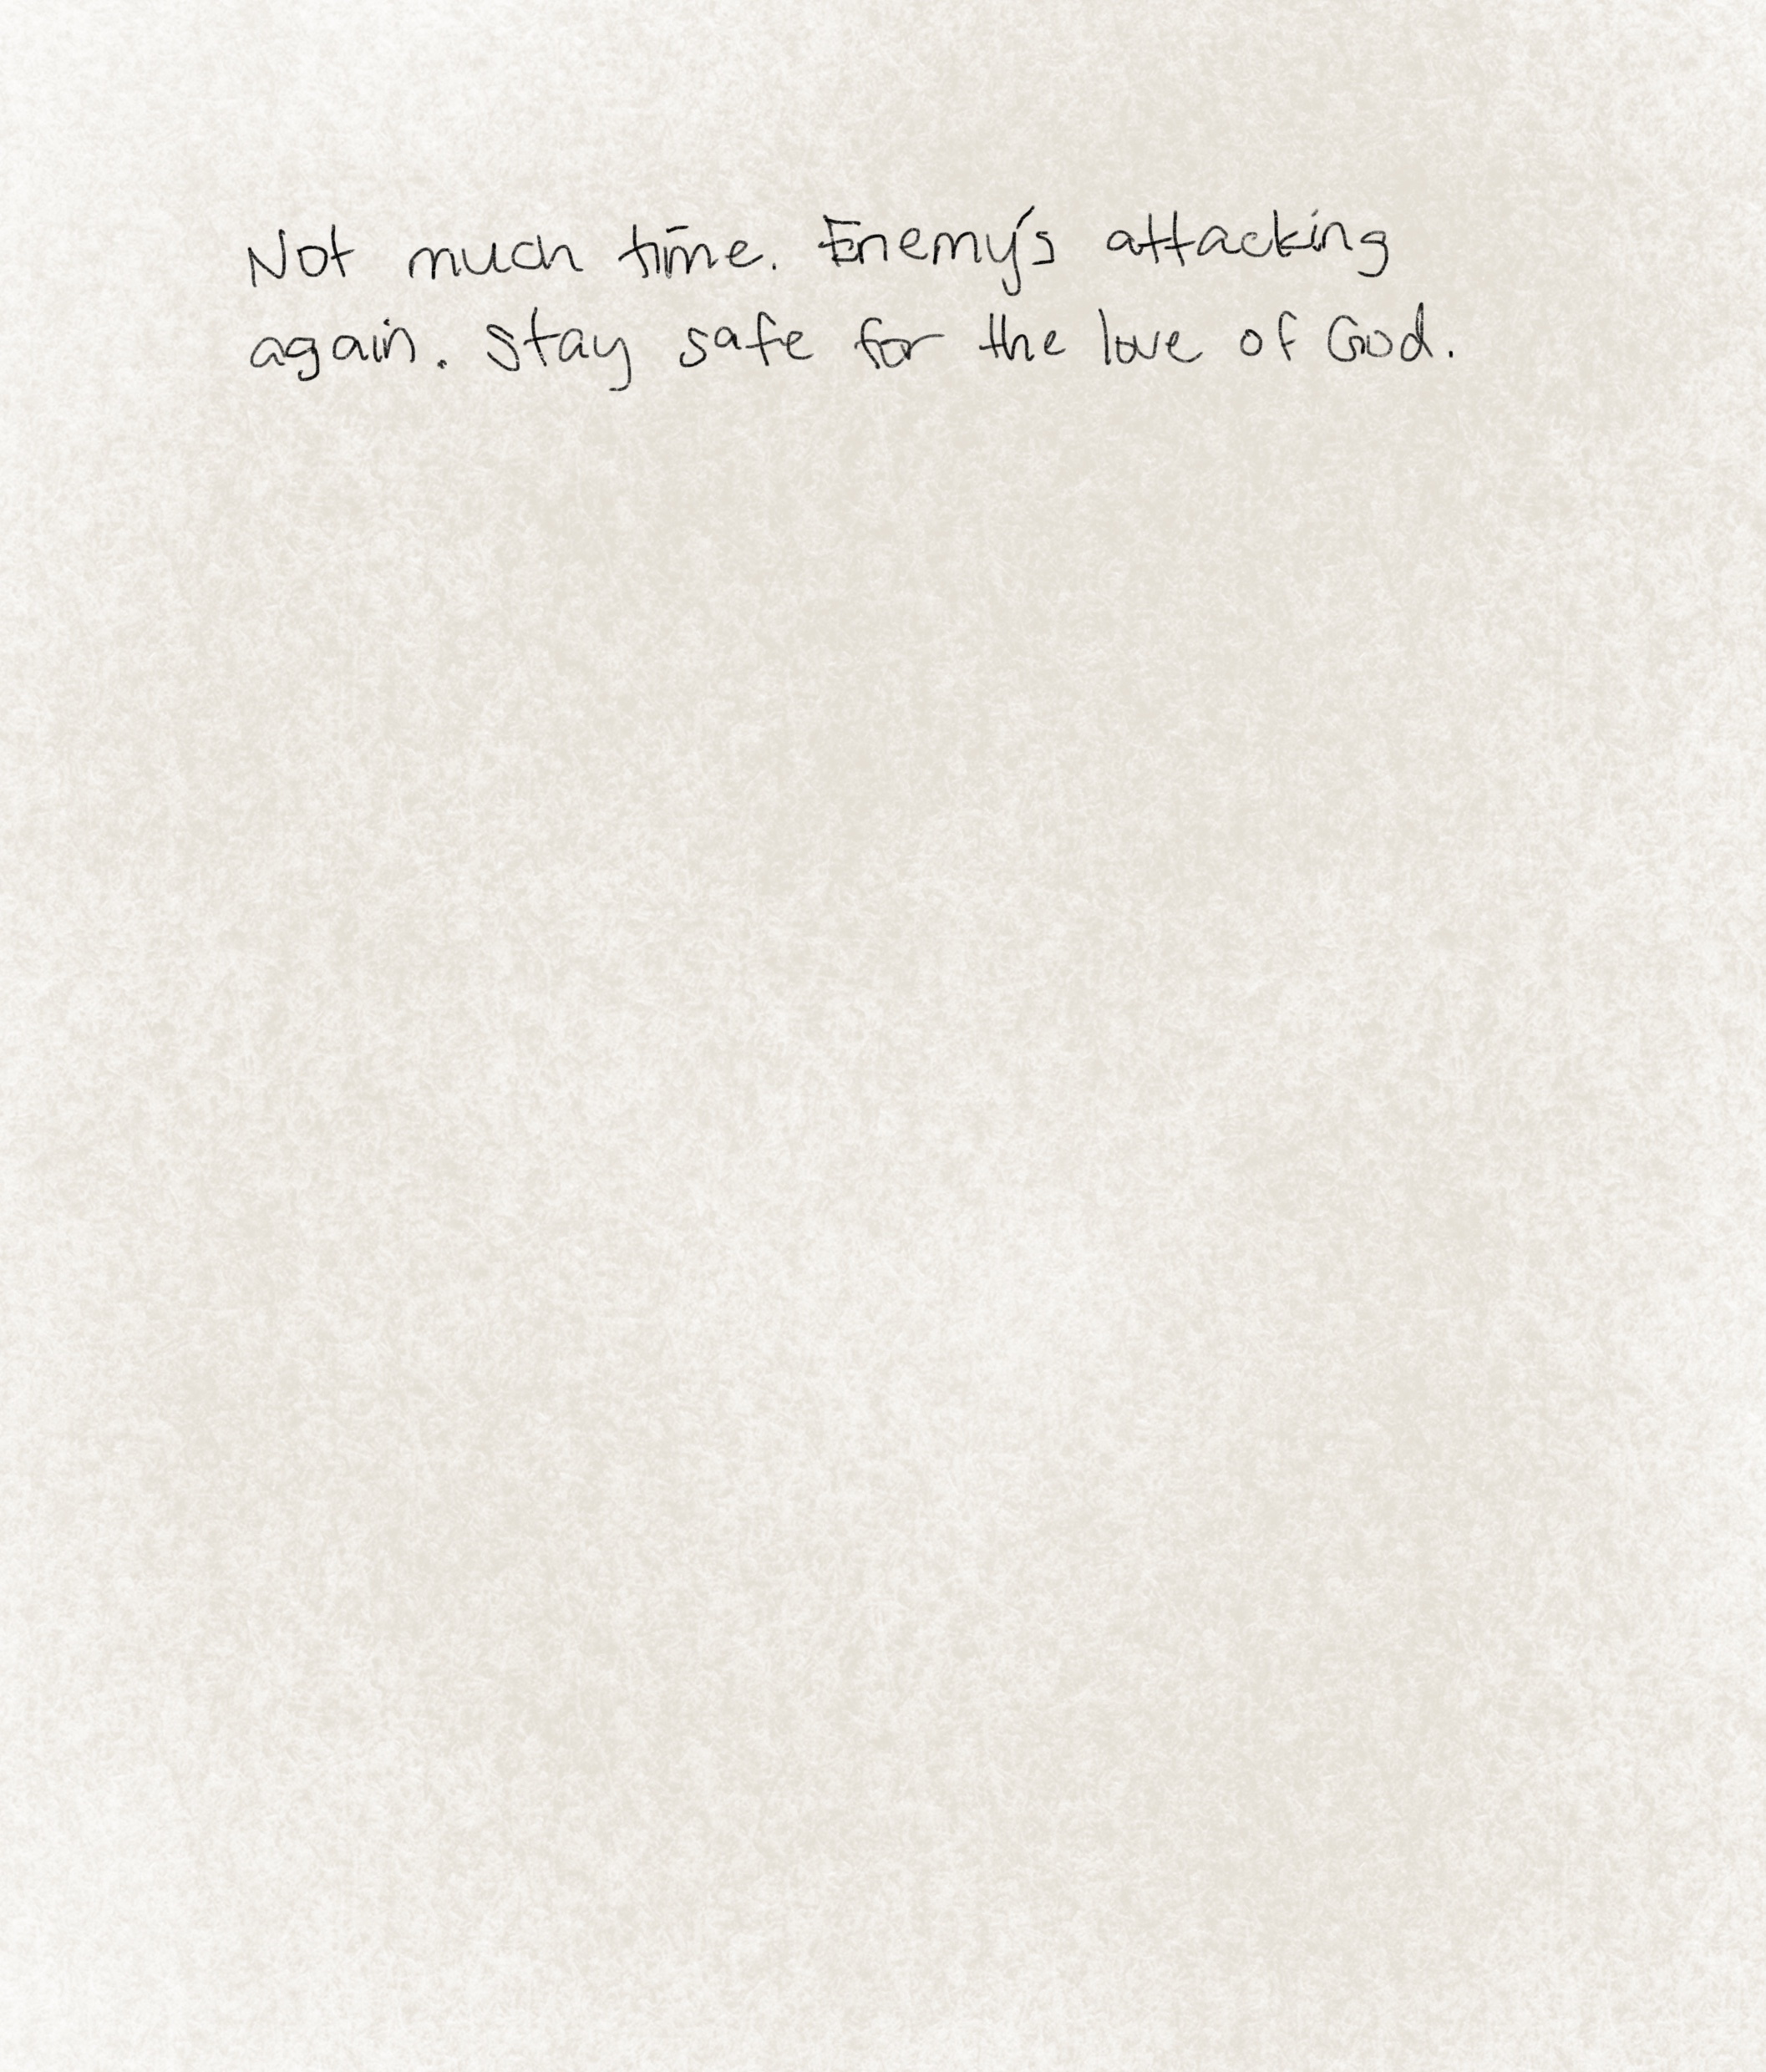 Not much time. Enemy's attacking
again. Stay safe for the love of God.